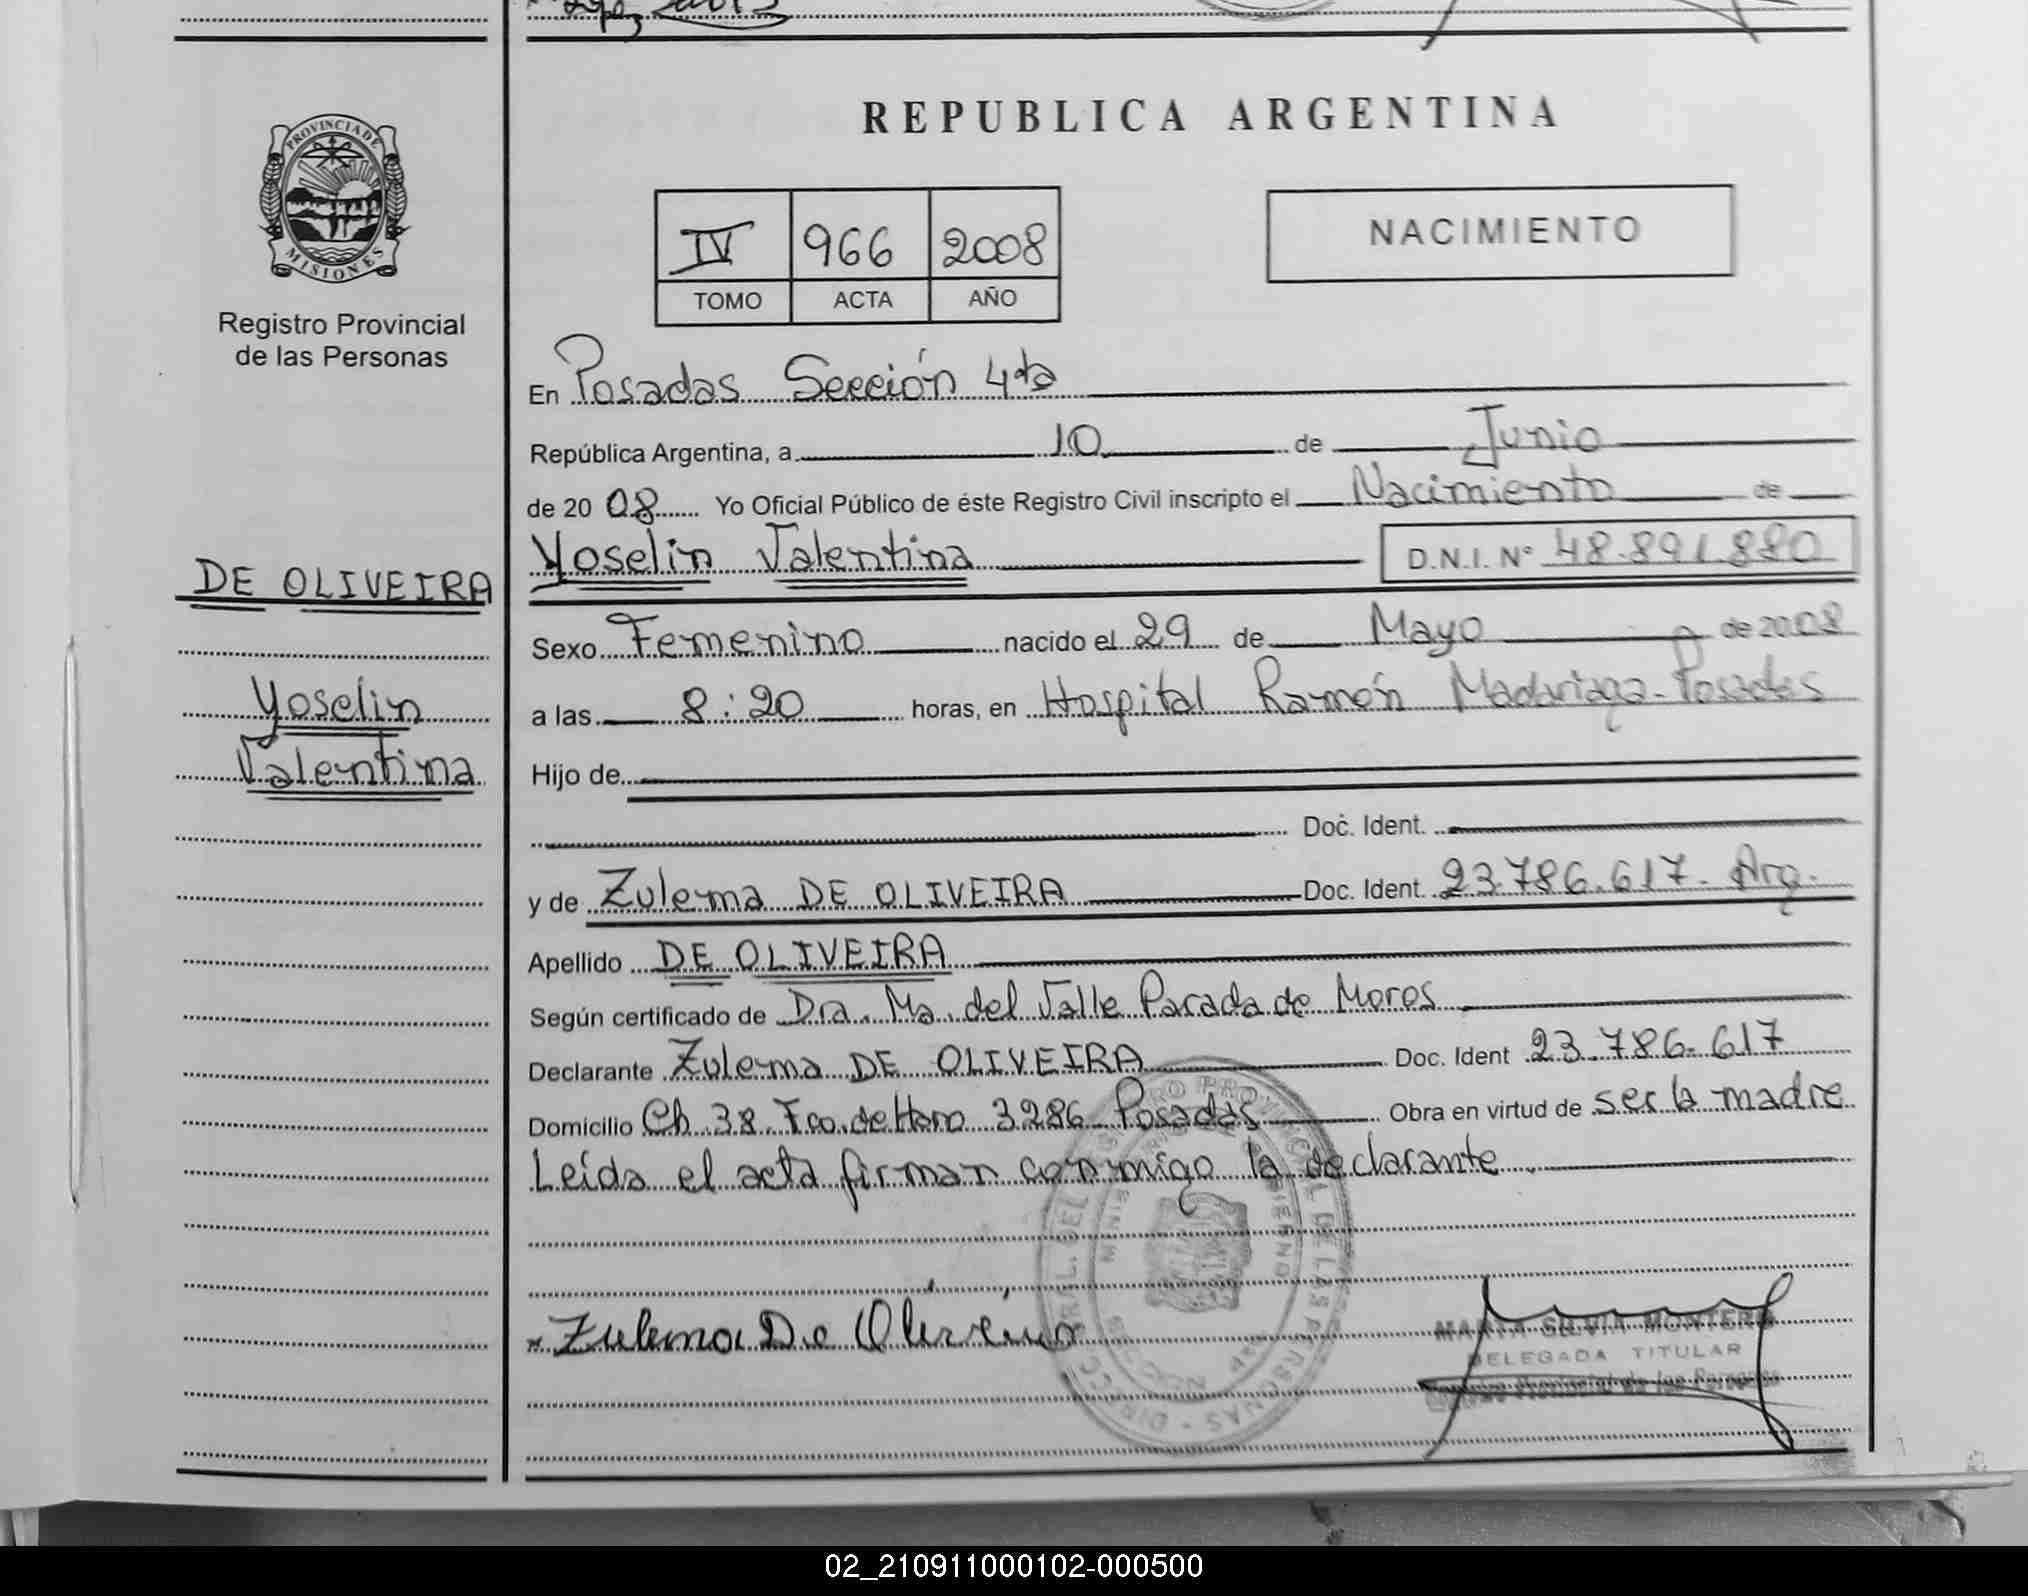 REPUBLICA ARGENTINA
PROVINCIA DE MISIONES
Registro Provincial
de las Personas
IV 966 2008
TOMO ACTA AÑO
NACIMIENTO
En Posadas Sección 4ta
República Argentina, a 10 de Junio
de 2008 Yo Oficial Público de éste Registro Civil inscripto el Nacimiento de
Yoselin Valentina D.N.I. Nº 48.891.880
DE OLIVEIRA
Yoselin
Valentina
Sexo Femenino nacido el 29 de Mayo de 2008
a las 8:20 horas, en Hospital Ramón Madariaga - Posadas
Hijo de
Doc. Ident.
y de Zulema DE OLIVEIRA Doc. Ident. 23.786.617. Arg.
Apellido DE OLIVEIRA
Según certificado de Dra. Ma. del Valle Parada de Moros
Declarante Zulema DE OLIVEIRA Doc. Ident 23.786.617
Domicilio Ch 38 Fco. de Haro 3286 Posadas Obra en virtud de ser la madre
Leída el acta firman conmigo la declarante
Zulema De Oliveira
MARTA SILVIA MONTERO
DELEGADA TITULAR
Registro Provincial de las Personas
02_210911000102-000500